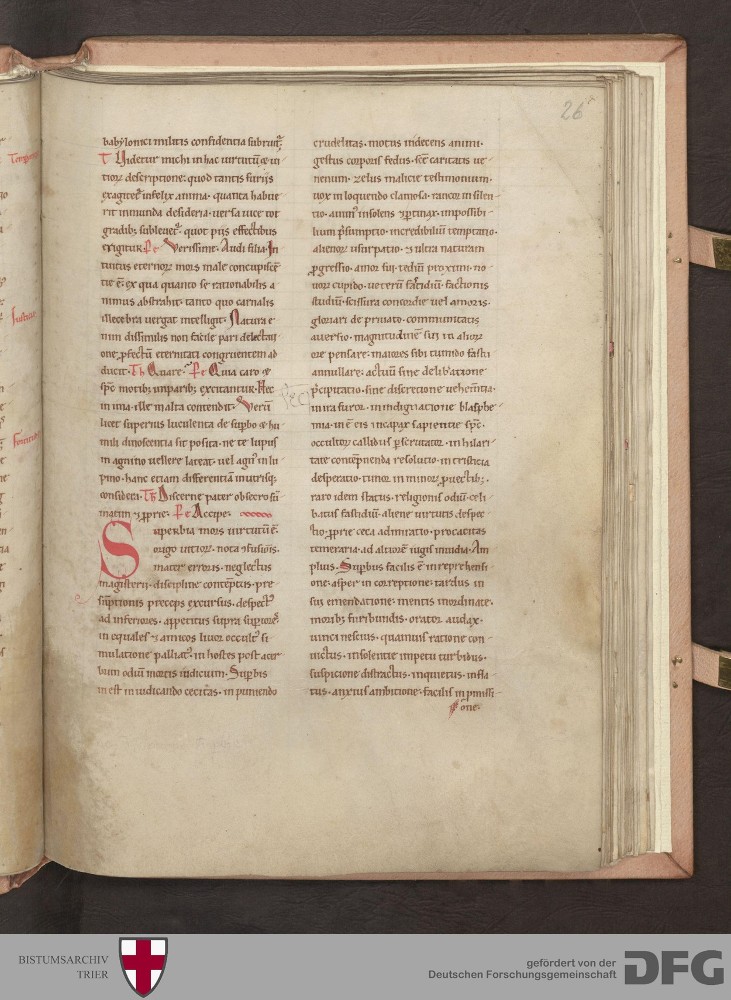 26
babylonici militis confidentia subruit᷑.
T Videtur michi in hac uirtutū ⁊ ui-
tiorꝝ descriptione: quod tantis furijs
exagitet᷑ infelix anima. quanta habue
rit inmunda desideria. uersa uice tot
gradibꝫ subleuet᷑. quot pijs effectibus
erigitur. Pe Verissime. Audi filia. In
tuitus eternorꝝ mors male concupiscē
tie ē. ex qua quanto se rationabilis a
nimus abstrahit. tanto quo carnalis
illecebra uergat intelligit. Natura e
nim dissimilis non facile pari delectati
one ꝓfectū eternitati congruentem ad
ducit. Th Quare. Pe Quia caro ⁊
spc̄ motibꝫ imparibꝫ excitantur. Hec
in ima. ille in alta contendit. Verū
licet superius luculenta de suꝑbo ⁊ hu
mili dinoscentia sit posita. ne te lupus
in agnino uellere lateat. uel agn᷒ in lu
pino. hanc etiam differentiā in utrisqꝫ
considera. Th Discerne pater obsecro sū
matim ⁊ ꝓprie. Pe Accipe.
Superbia mors uirtutū ē.
origo uitiorꝝ. nota ꝯfusiōis.
mater erroris. neglectus
magisterij. discipline contēptus. pre
sūptionis preceps excursus. despect᷒
ad inferiores. appetitus supra suꝑiores.
in equales ⁊ amicos liuor occult᷒ si
mulatione palliat᷒. in hostes post acer
bum odiū mortis indicium. Suꝑbis
in est in iudicando cecitas. in puniendo
crudelitas. motus indecens animi.
gestus corporis fedus. scē caritatis ue
nenum. zelus malicie testimonium.
uox in loquendo clamosa. rancor in silen
tio. anim᷒ insolens ⁊ ꝑtinax. impossibi-
lium p̄sumptio. incredibiliū temptatio.
alienorꝝ usurpatio. ⁊ ultra naturam
ꝓgressio. amor sui. tediū proximi. no
uorꝝ cupido. ueterū fastidiū. factionis
studiū. scissura concordie uel amoris.
gloriari de priuato. communitatis
auersio. magnitudinē sui in alioꝝ
ore pensare. maiores sibi tumido fastu
annullare. actuū sine delibatione
p̄cipitatio. sine discretione uehementia.
in ira furor. in indignatione blasphe
mia. in ē eis incapax sapientie spc̄.
occultorꝝ callidus ꝑscrutator. in hilari
tate contēpnenda resolutio. in tristicia
desperatio. tumor in minorꝝ ꝓuectibꝫ.
raro idem status. religionis odiū. celi
batus fastidiū. aliene uirtutis despec
tio. ꝓprie ceca admiratio. procacitas
temeraria. ad altiorē iugis inuidia. Am
plius. Suꝑbus facilis ē in reprehensi
one. asper in correptione. tardus in
sui emendatione. mentis inordinate.
moribꝫ furibundis. orator audax.
uinci nescius. quamuis ratione con
uictus. insolentie impetu turbidus.
suspicione distractus. inquietus. infla
tus. anxius ambitione. facilis in pmissi
one.
BISTUMSARCHIV
TRIER
gefördert von der
Deutschen Forschungsgemeinschaft
DFG